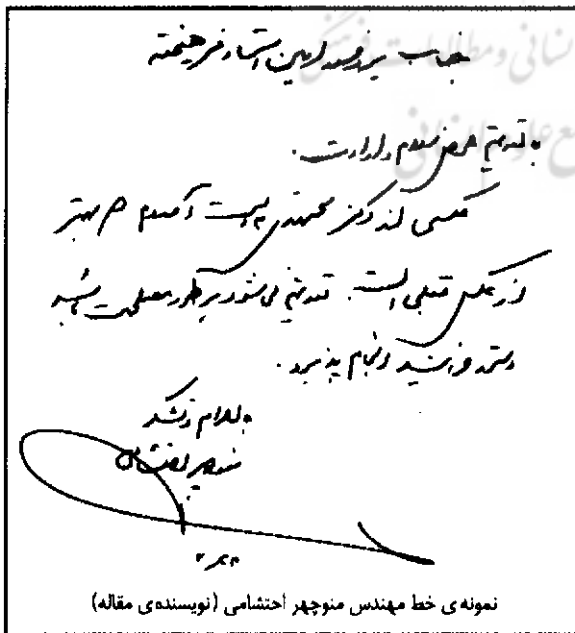 جناب پروفسور امین استاد فرهیخته
با تقدیم عرض سلام و ارادت.
عکسی از دکتر مجتهدی بدست آمد هم بهتر
از عکس قبلی است. تقدیم می‌شود بهر طور مصلحت باشد
دستور فرمائید انجام پذیرد.
با احترام و تشکر
منوچهر احتشامی
نمونه‌ی خط مهندس منوچهر احتشامی (نویسنده‌ی مقاله)